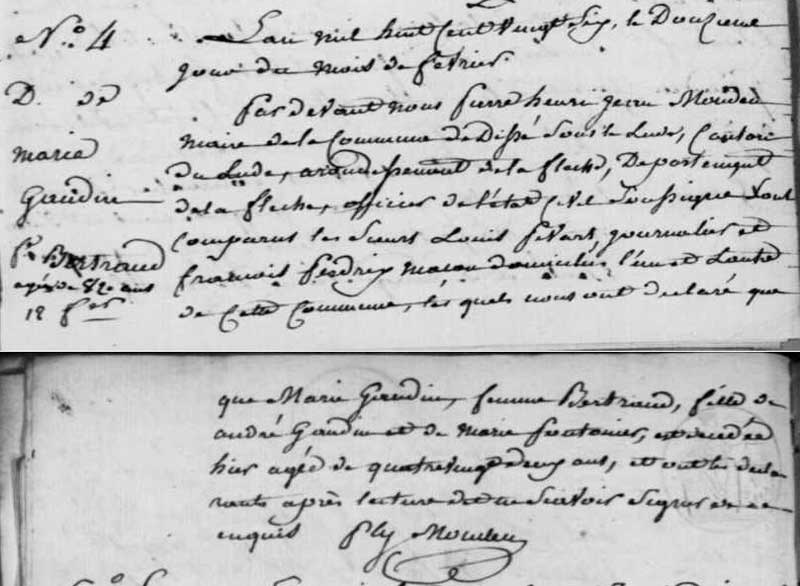 N.º 4
D. de
marie
Gaudin
fe Bertraud
agée de 82 ans
12 fer
L'an mil huit Cent vingt Six, le Douzieme
jour du mois de fevrier.
par devant nous pierre henri
maire de la Commune de Dissé Sous le Lude, Canton
du Lude, arondissement de la fleche, Departement
de la fleche, officier de l'état Civil Soussigné Sont
Comparus les Sieurs Louis journalier et
francois perdrix macon domiciliés l'un et L'autre
de Cette Commune, les quels nous ont declaré que
que Marie Gaudin, femme Bertraud, fille de
andré Gaudin et de marie est decedée
hier agée de quatrevingt deux ans, et ont les decla
rants après lecture dit ne Savoir Signer de ce
enquis